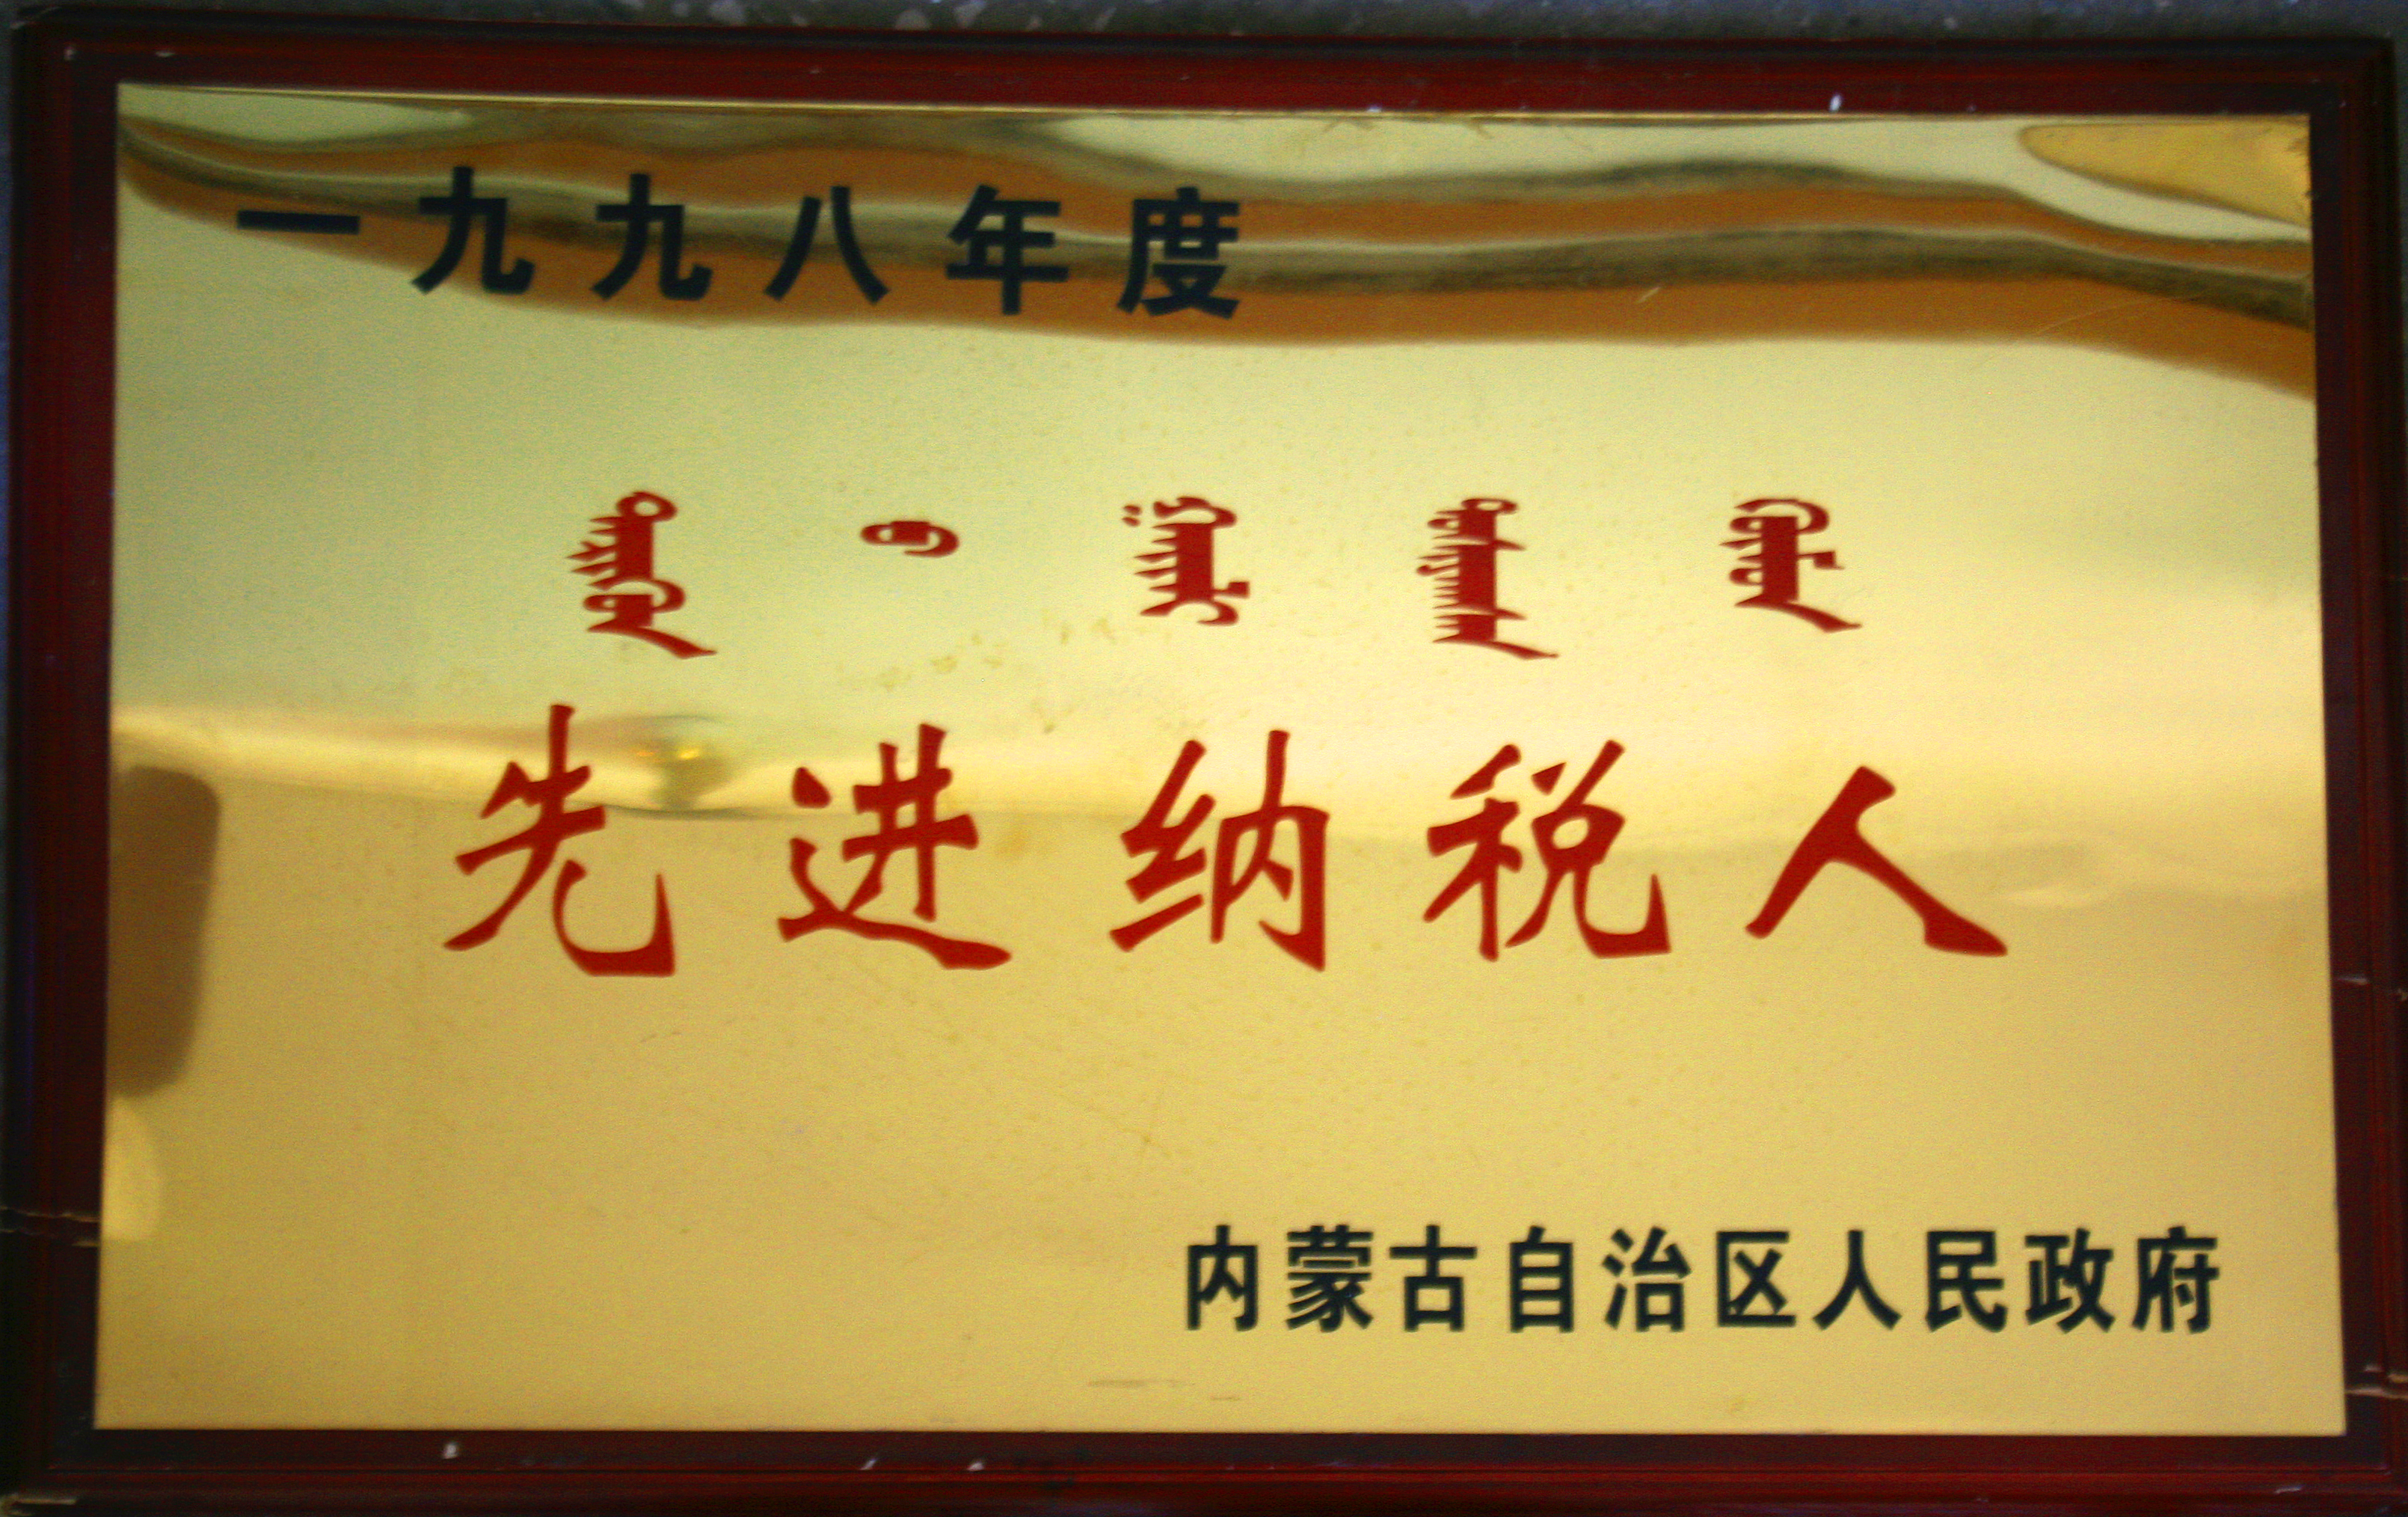 一九九八年度
先进纳税人
内蒙古自治区人民政府